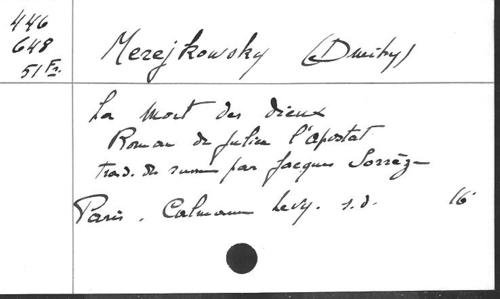 446
648
51 Fr.
Merejkowsky (Dmitry)
La Mort des dieux
Roman de Julien l'apostat
trad. du russe par Jacques Sorrèze
Paris. Calmann Levy. s.d. 16°